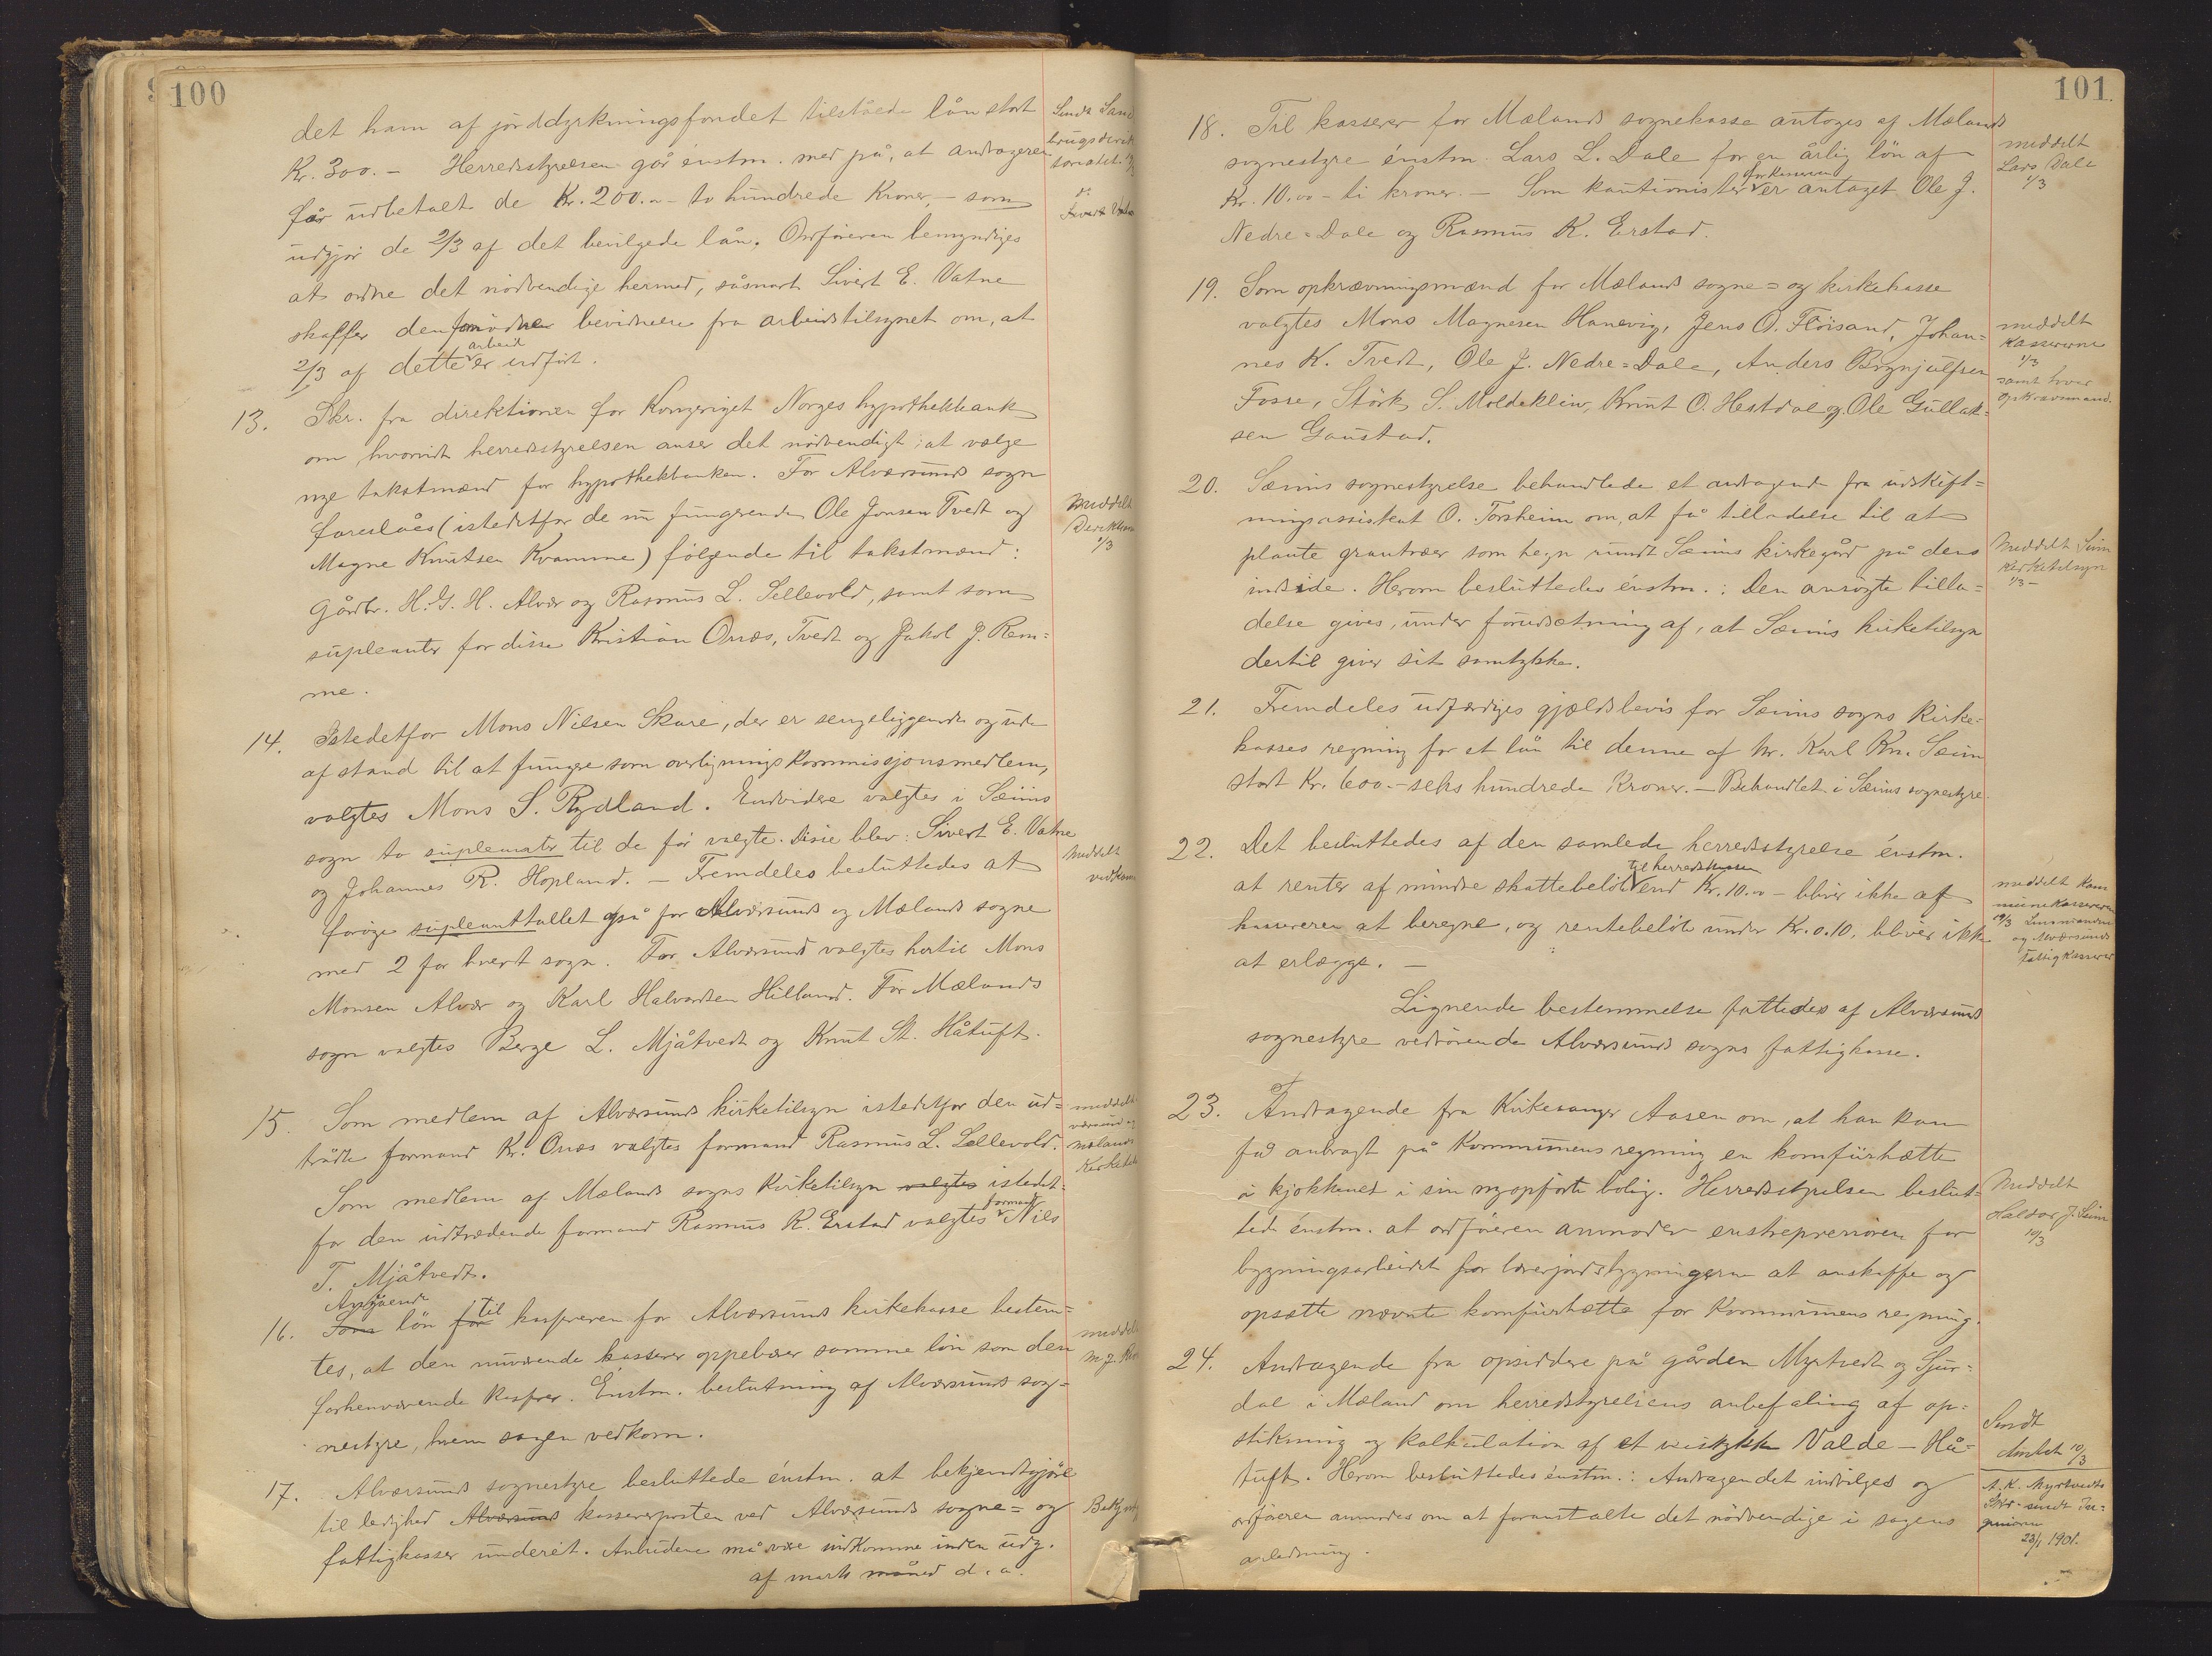 100
det ham af jorddyrkningsfondet tilståede lån stort
Kr. 300.- Herredsstyrelsen går énstm. med på, at andrageren
får udbetalt de Kr. 200.00 - to hundrede Kroner, - som
udgjør de 2/3 af det bevilgede lån. Ordføreren bemyndiges
at ordne det nödvendige hermed, såsnart Sivert E. Vatne
skaffer den fornödne bevidnelse fra arbeidstilsynet om, at
2/3 af dette arbeid er udfört.
13. Skr. fra direktionen for Kongeriget Norges hypothekbank
om, hvorvidt herredsstyrelsen anser det nödvendigt at vælge
nye takstmænd for hypothekbanken. For Alværsunds sogn
foreslåes (istedetfor de nu fungerende Ole Jonsen Tvedt og
Magne Knutsen Kvamme) følgende til takstmænd:
Meddelt
Direktion
1/3
Gårdbr. H. G. H. Alvær og Rasmus L. Sellevold, samt som
supleanter for disse Kristian Onæs, Tvedt og Jakob J. Rem=
me.
14. Istedetfor Mons Nilsen Skare, der er sengeliggende og ude
af stand til at fungere som overligningskommissjonsmedlem,
valgtes Mons S. Rydland. Endvidere valgtes i Sæims
sogn to supleanter til de för valgte. Disse blev: Sivert E. Vatne
og Johannes R. Hopland. - Fremdeles besluttedes at
Meddelt
vedkom
forøge supleanttallet også for Alværsunds og Mælands sogne
med 2 for hvert sogn. For Alværsund valgtes hertil Mons
Monsen Alvær og Karl Halvordsen Hilland. For Mælands
sogn valgtes Berge L. Mjåtvedt og Knut St. Håtuft.
15. Som medlem af Alværsunds kirketilsyn istedetfor den ud=
trådte formand Kr. Onæs valgtes formand Rasmus L. Sellevold.
Som medlem af Mælands sogns Kirketilsyn valgtes istedet=
for den udtrædende formand Rasmus K. Erstad valgtes formand Nils
T. Mjåtvedt.
16. Som Angående lön for til kasserern for Alværsunds kirkekasse bestem=
tes, at den nuværende kasserer oppebær samme lön som den
forhenværende kasserer. Énstm. beslutning af Alværsunds sog=
nestyre, hvem sagen vedkom.
17. Alværsunds sognestyre besluttede énstm. at bekjendtgjøre
til ledighed Alværsund kassererposten ved Alværsunds sogne= og
fattigkasser underét. Anbudene må være indkomme inden udg.
af marts måned d. a.
101
18. Til kasserer for Mælands sognekasse antoges af Mælands
sognestyre énstm. Lars L. Dale for en årlig lön af
Kr. 10.00 - ti kroner. - Som kautionister for kassereren er antaget Ole J.
Nedre-Dale og Rasmus K. Erstad.
meddelt
Lars Dale
1/3
19. Som opkrævningsmænd for Mælands sogne= og kirkekasse
valgtes Mons Magnesen Hanevig, Jens O. Flöisand, Johan=
nes K. Tvedt, Ole J. Nedre=Dale, Anders Brynjulfsen
Fosse, Störk S. Moldeklev, Knut O. Hestdal og Ole Gullak=
sen Gaustad.
meddelt
Kassererne
1/3
samt hver
opkrævnmand.
20. Sæims sognestyrelse behandlede et andragende fra udskift=
ningsassistent O. Torsheim om, at få tilladelse til at
plante grantræer som hegn rundt Sæims kirkegård på dens
indside. Herom besluttedes énstm.: Den ansøgte tilla=
delse gives, under forudsætning af, at Sæims kirketilsyn
dertil giver sit samtykke.
Meddelt Seim
Kirketilsyn
1/3 -
21. Fremdeles udfærdiges gjældsbevis for Sæims sogns Kirke=
kasses regning for et lån til denne af hr. Karl Kn. Sæim
stort Kr. 600.- seks hundrede Kroner. - Behandlet i Sæims sognestyre.
22. Det besluttedes af den samlede herredsstyrelse énstm.
at renter af mindre skattebelöb til herredskassen end Kr. 10.00 - bliver ikke af
kassereren at beregne, og rentebelöb under Kr. 0.10, bliver ikke
at erlægge. -
meddelt Kom
munekassereren
10/3 Lensmanden
og Alværsunds
fattigkasserer
Lignende bestemmelse fattedes af Alværsunds
sognestyre vedrörende Alværsunds sogns fattigkasse.
23. Andragende fra Kirkesanger Aasen om, at han kan
få anbragt på Kommunens regning en komfürhætte
i kjøkkenet i sin nyopförte bolig. Herredsstyrelsen beslut=
tede énstm. at ordføreren anmoder entreprenören for
bygningsarbeidet for lærerjordsbygningerne at anskaffe og
opsætte nævnte komfürhætte for Kommunens regning.
Meddelt
Haldor J. Seim
10/3
24. Andragende fra opsiddere på gården Myrtvedt og Sjur=
dal i Mæland om herredsstyrelsens anbefaling af op=
stikning og kalkulation af et veistykke Valde - Hå=
tuft. Herom besluttedes énstm.: Andragendet indvilges og
ordføreren anmodes om at foranstalte det nödvendige i sagens
anledning.
Sendt
Amtet 10/3
A. K. Myrtvedts
Skr. sendt In=
geniøren
23/1 1901.